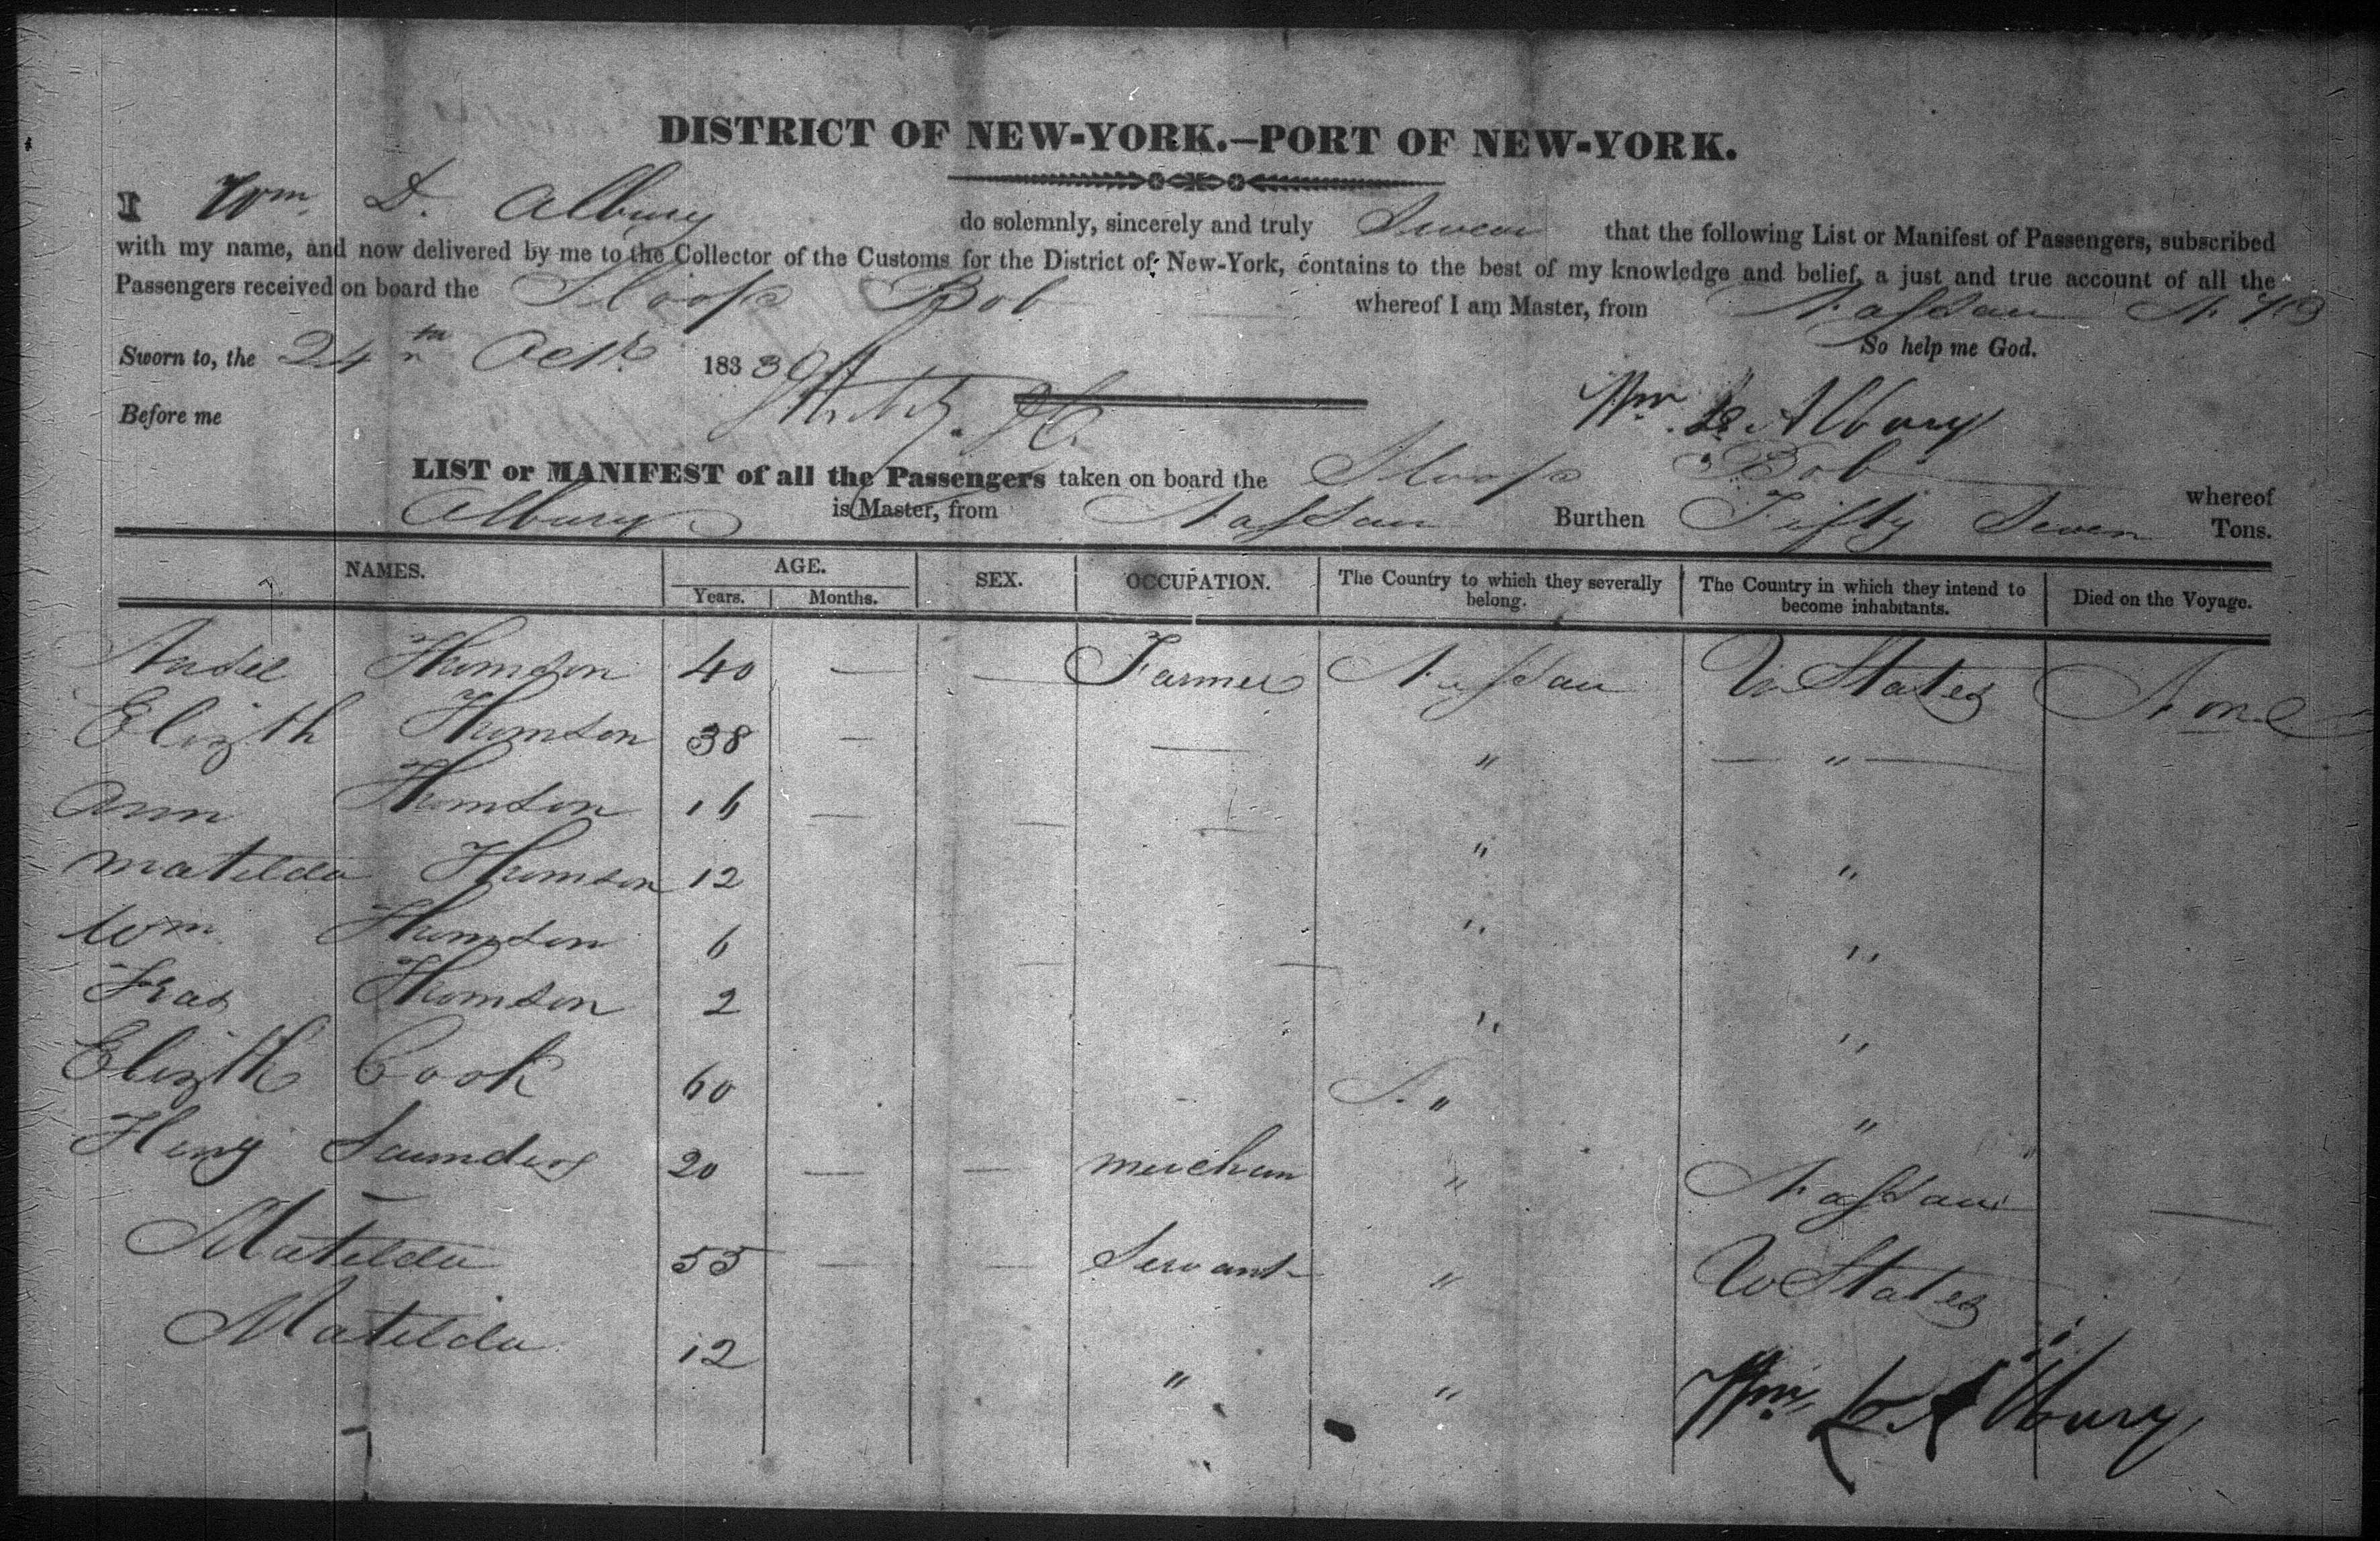 DISTRICT OF NEW-YORK.—PORT OF NEW-YORK.
I Wm. D. Albury do solemnly, sincerely and truly Swear that the following List or Manifest of Passengers, subscribed
with my name, and now delivered by me to the Collector of the Customs for the District of New-York, contains to the best of my knowledge and belief, a just and true account of all the
Passengers received on board the Sloop Bob whereof I am Master, from Nassau N.
So help me God.
Sworn to, the 24th Octr. 183
Before me
Wm. Albury
LIST or MANIFEST of all the Passengers taken on board the Sloop Bob whereof
Albury is Master, from Nassau Burthen Fifty Seven Tons.
NAMES. AGE. SEX. OCCUPATION. The Country to which they severally belong. The Country in which they intend to become inhabitants. Died on the Voyage.
Years. Months.
Thomson 40 — — Farmer Nassau U States None
Elizth Thomson 38 — — " — " —
Ann Thomson 16 — — — "
Matilda Thomson 12 " "
Wm Thomson 6 — — "
Fras Thomson 2 " "
Elizth Cook 60 "
Heny Saunders 20 — — merchan " Nassau —
Matilda 55 — — Servant " U States
Matilda 12 " "
Wm. Albury